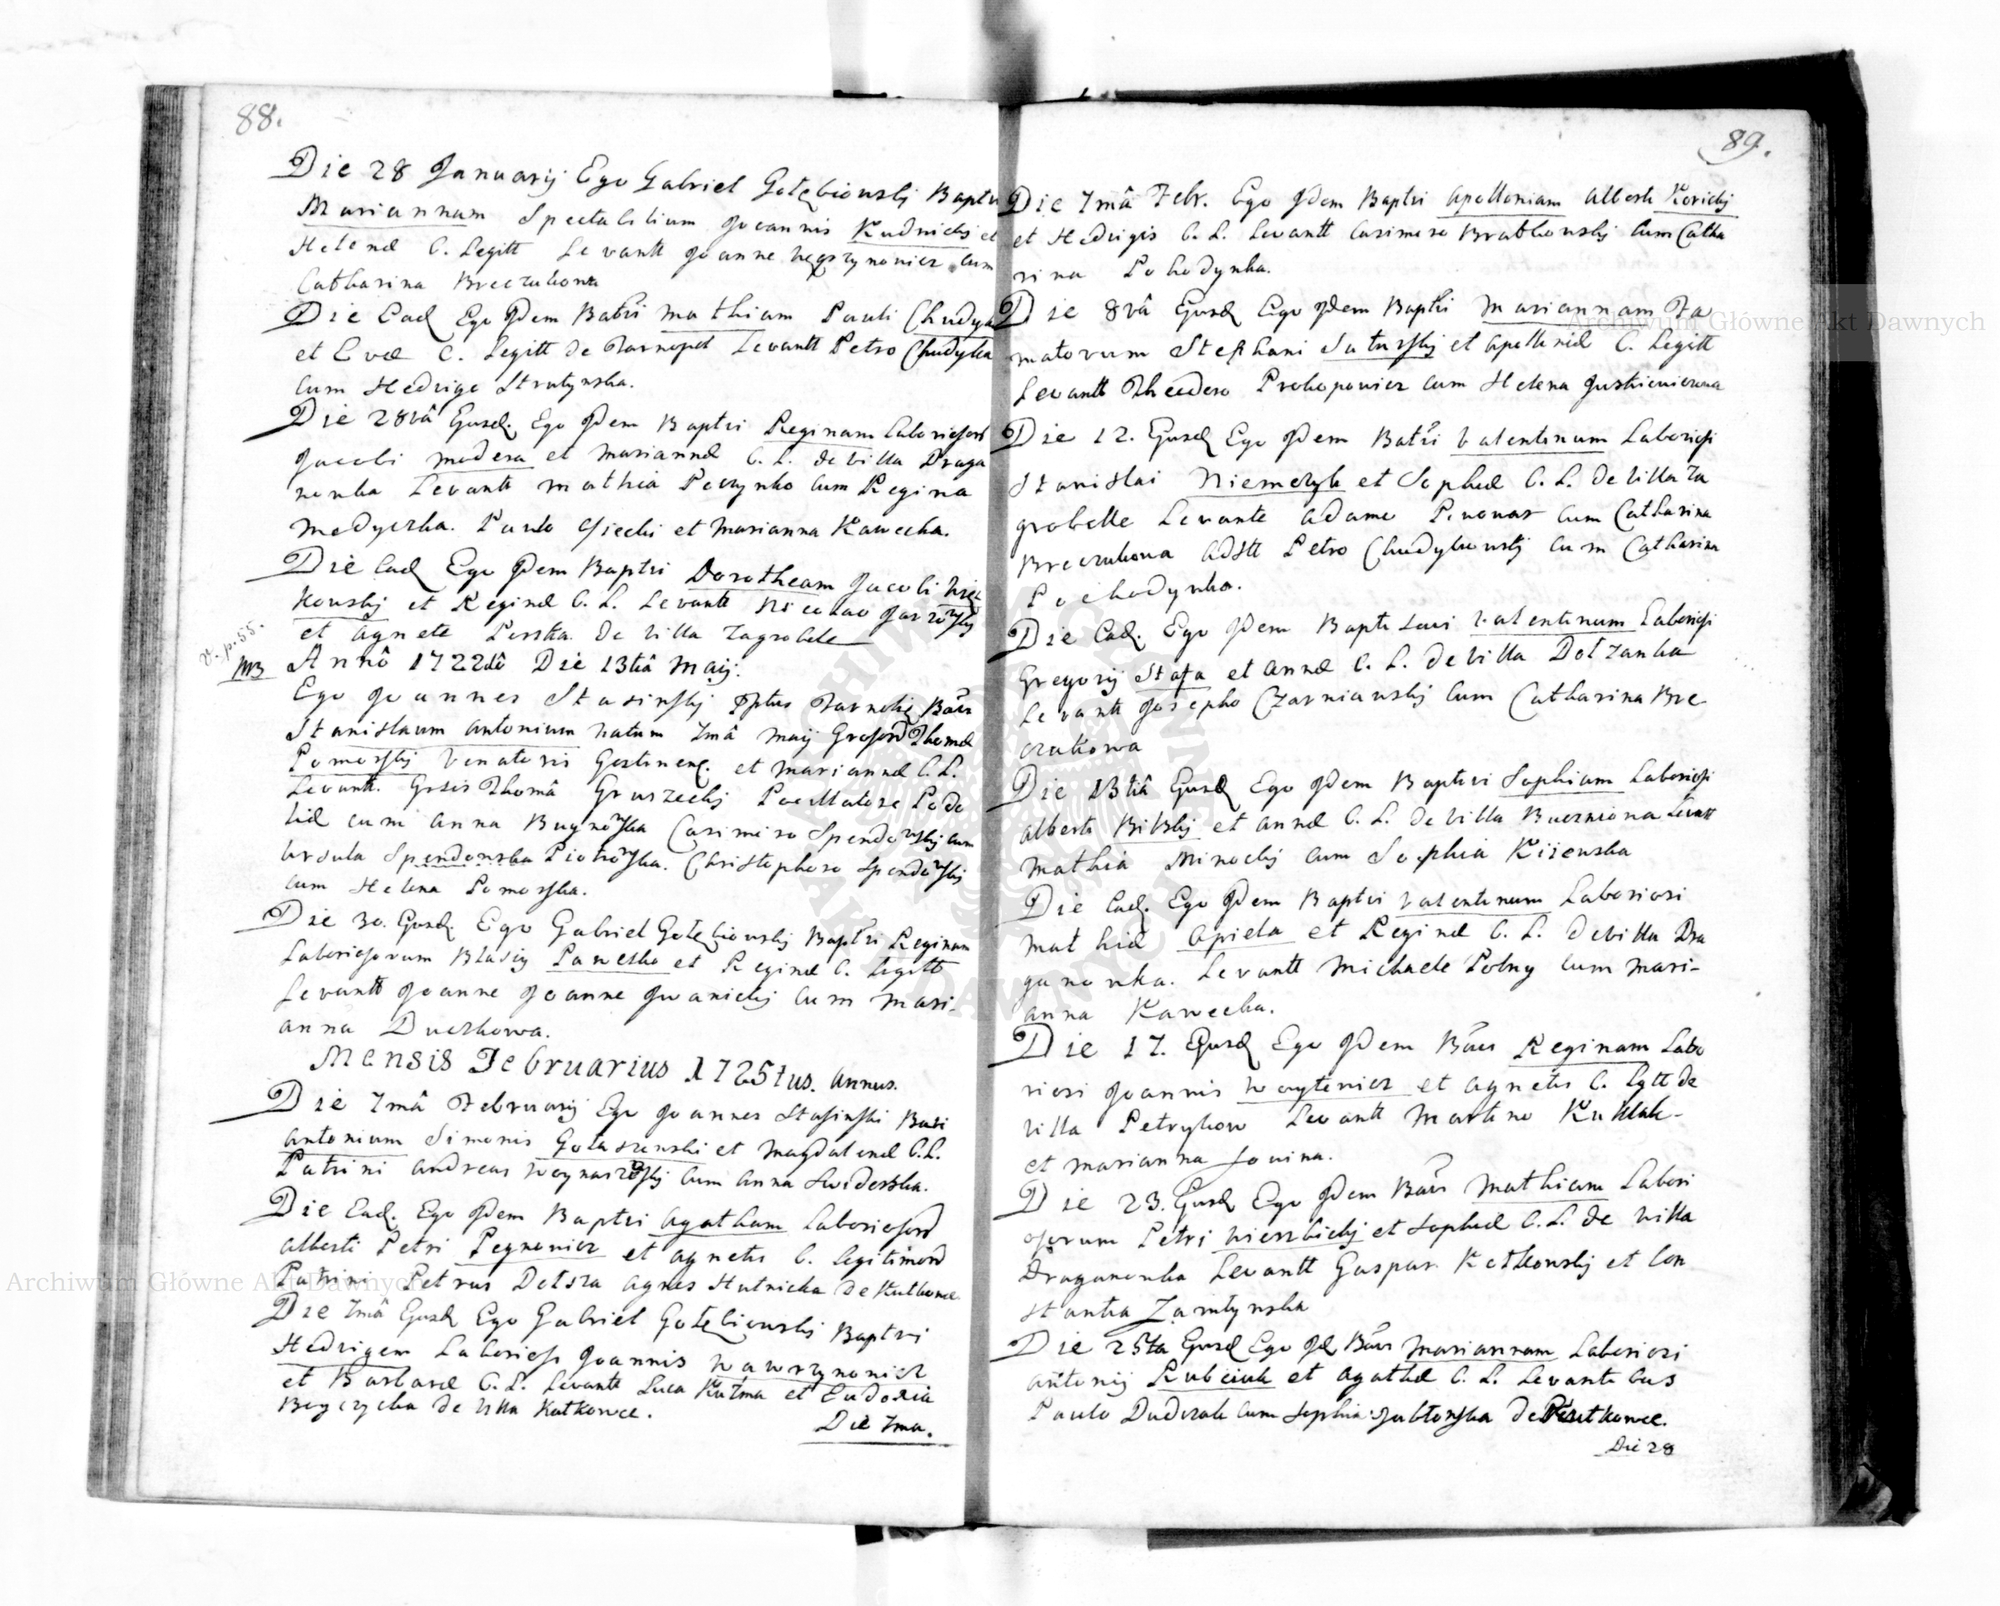 88.
Die 28 Januarij Ego Gabriel Gołębiowskj Baptvi
Mariannam Spectabilium Joannis Kudnickj et
Helenæ C. Legitt Levantt Joanne Węgrzynowicz cum
Catharina Breczukowa
Die Ead Ego Idem Babtvi Mathiam Pauli Chudyka
et Evæ C. Legitt de Tarnopol Levantt Petro Chudyka
cum Hedvige Strutynska.
Die 28vâ Ejusd. Ego Idem Baptvi Reginam Laboriosorū
Jacobi Madera et Mariannæ C. L. de Villa Draga
nowka Levantt Mathia Powzynko cum Regina
Medyczka. Paulo et Marianna Kawecka.
Die Ead Ego Idem Baptvi Dorotheam Jacobi
kowskj et Reginæ C. L. Levantt Nicolao
et Agnete Perska de Villa Zagrobele
v. p. 55.
NB Annô 1722dô Die 13tiâ Maij.
Ego Joannes Stasinskj Pptus Tarnolis Bavi
Stanislaum Antonium natum 7mâ Maij Grosord Thomæ
Pomorskj Venatoris et Mariannæ C. L.
Levantt. Gsis Thomâ Gruszeckj Pocillatore Podo
liæ cum Anna Casimiro cum
Ursula Spendowska Christophoro
cum Helena Pomorska.
Die 30. Ejusd. Ego Gabriel Gołębiowskj Baptvi Reginam
Laboriosorum Blasij Pawelko et Reginæ C. Legitt
Levantt Joanne Joanne Jwanickj cum Mari-
anna Duczkowa.
Mensis Februarius 1725tus. Annus.
Die 7mâ Februarij Ego Joannes Stasinski Bavi
Antonium Simonis Golaszenski et Magdalenæ C. L.
Patrini Andreas cum Anna Swiderska.
Die Ead. Ego Idem Baptvi Agatham Laboriosorū
Alberti Petri Pegnowicz et Agnetis C. Legitimorū
Patrini Petrus Delsza Agnes Hutnicka de Kutkowce
Die 7mâ Ejusd Ego Gabriel Gołębiowskj Baptvi
Hedvigem Laborioso Joannis Wawrzynowicz
et Barbaræ C. L. Levantt Luca Kuźma et Eudoxia
de Villa Kutkowce.
Die 7ma.
89.
Die 7mâ Febr. Ego Idem Baptvi Apolloniam Alberti Korickj
et Hedvigis C. L. Levantt Casimiro Bratkowskj cum Catha
rina Pohodynka.
Die 8vâ Ejusd Ego Idem Baptvi Mariannam Fa
matorum Stephani Saturskj et Apolleniæ C. Legitt
Levantt Theodoro Prokopowicz cum Helena Juskiewiczowna
Die 12. Ejusd Ego Idem Batvi Valentinum Laboriosi
Stanislai Niemczyk et Sophiæ C. L. de Villa Za
grobelle Levante Adamo Piwowar cum Catharina
Breczukowa Adstt Petro Chudykowskj cum Catharina
Pochodynka.
Die Ead. Ego Idem Baptisavi Valentinum Laboriosi
Gregorij Stafa et Annæ C. L. de Villa Dołzanka
Levantt Josepho Czarniawskj cum Catharina Bre
czukowa
Die 13tiâ Ejusd Ego Idem Baptivi Sophiam Laboriosi
Alberti Bilskj et Annæ C. L. de Villa Bucniowa Levantt
Mathia Minockj cum Sophia Kizewska
Die Ead. Ego Idem Baptvi Valentinum Laboriosi
Mathiæ Apiela et Reginæ C. L. de Villa Dra
ganowka. Levantt Michaele Polny cum Mari-
anna Kawecka.
Die 17. Ejusd Ego Idem Bavi Reginam Labo
riosi Joannis Woytowicz et Agnetis C. Lgtt de
Villa Petrykow Levantt Martino Kuklak-
et Marianna Sowina.
Die 23. Ejusd Ego Idem Bavi Mathiam Labori
osorum Petri Wierzbickj et Sophiæ C. L. de Villa
Draganowka Levantt Gaspar Ketkowskj et Con
stantia Zamtynska
Die 25ta Ejusd Ego Id Bavi Mariannam Laboriosi
Antonij Kubciuk et Agathæ C. L. Levantibus
Paulo Dudczak cum Sophia Jabłonska de Kutkowce.
Die 28
Archiwum Główne Akt Dawnych
Archiwum Główne Akt Dawnych